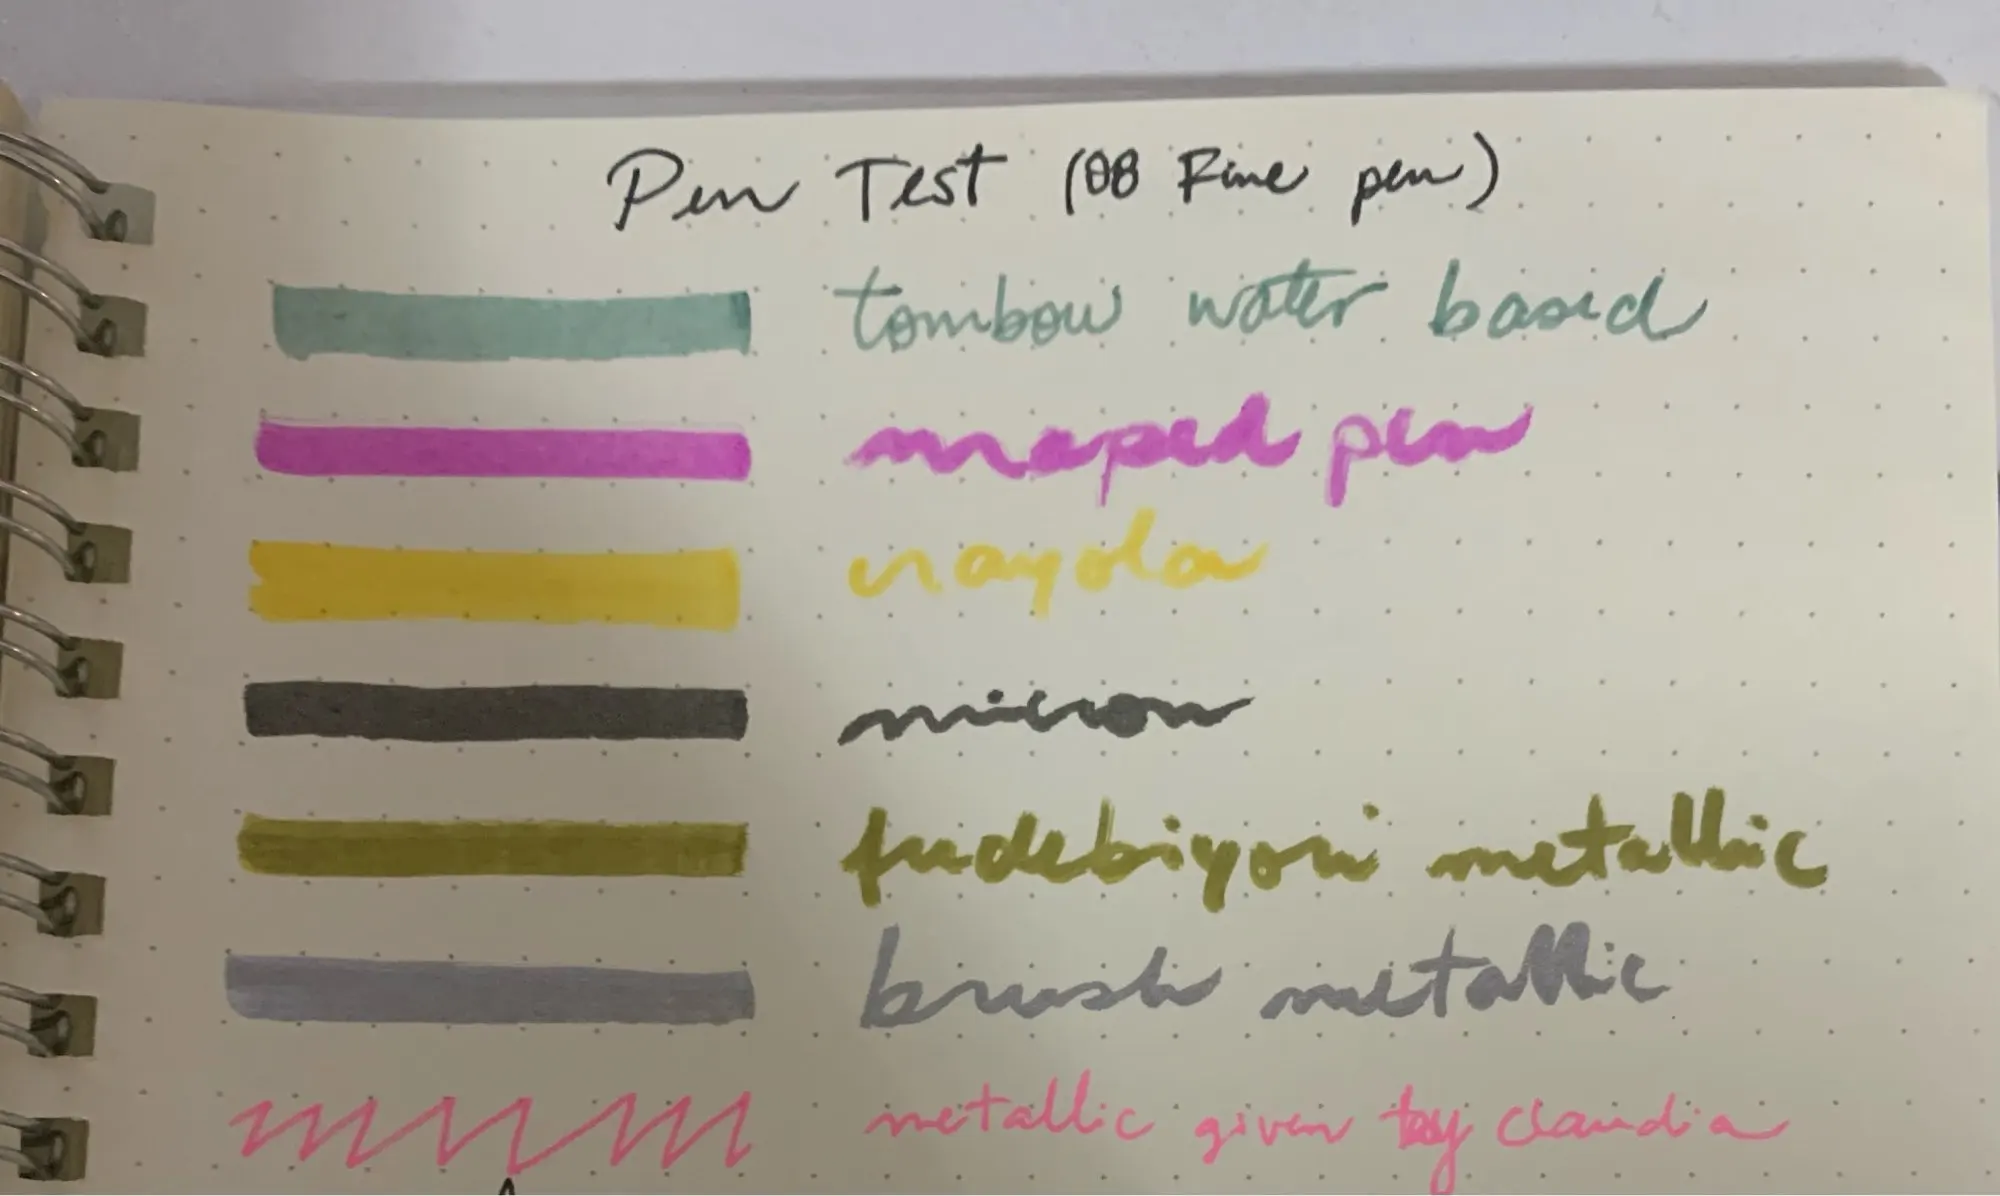 Pen Test (08 Fine pen)
tombow water based
maped pen
crayola
micron
fudebiyori metallic
brush metallic
metallic given by claudia